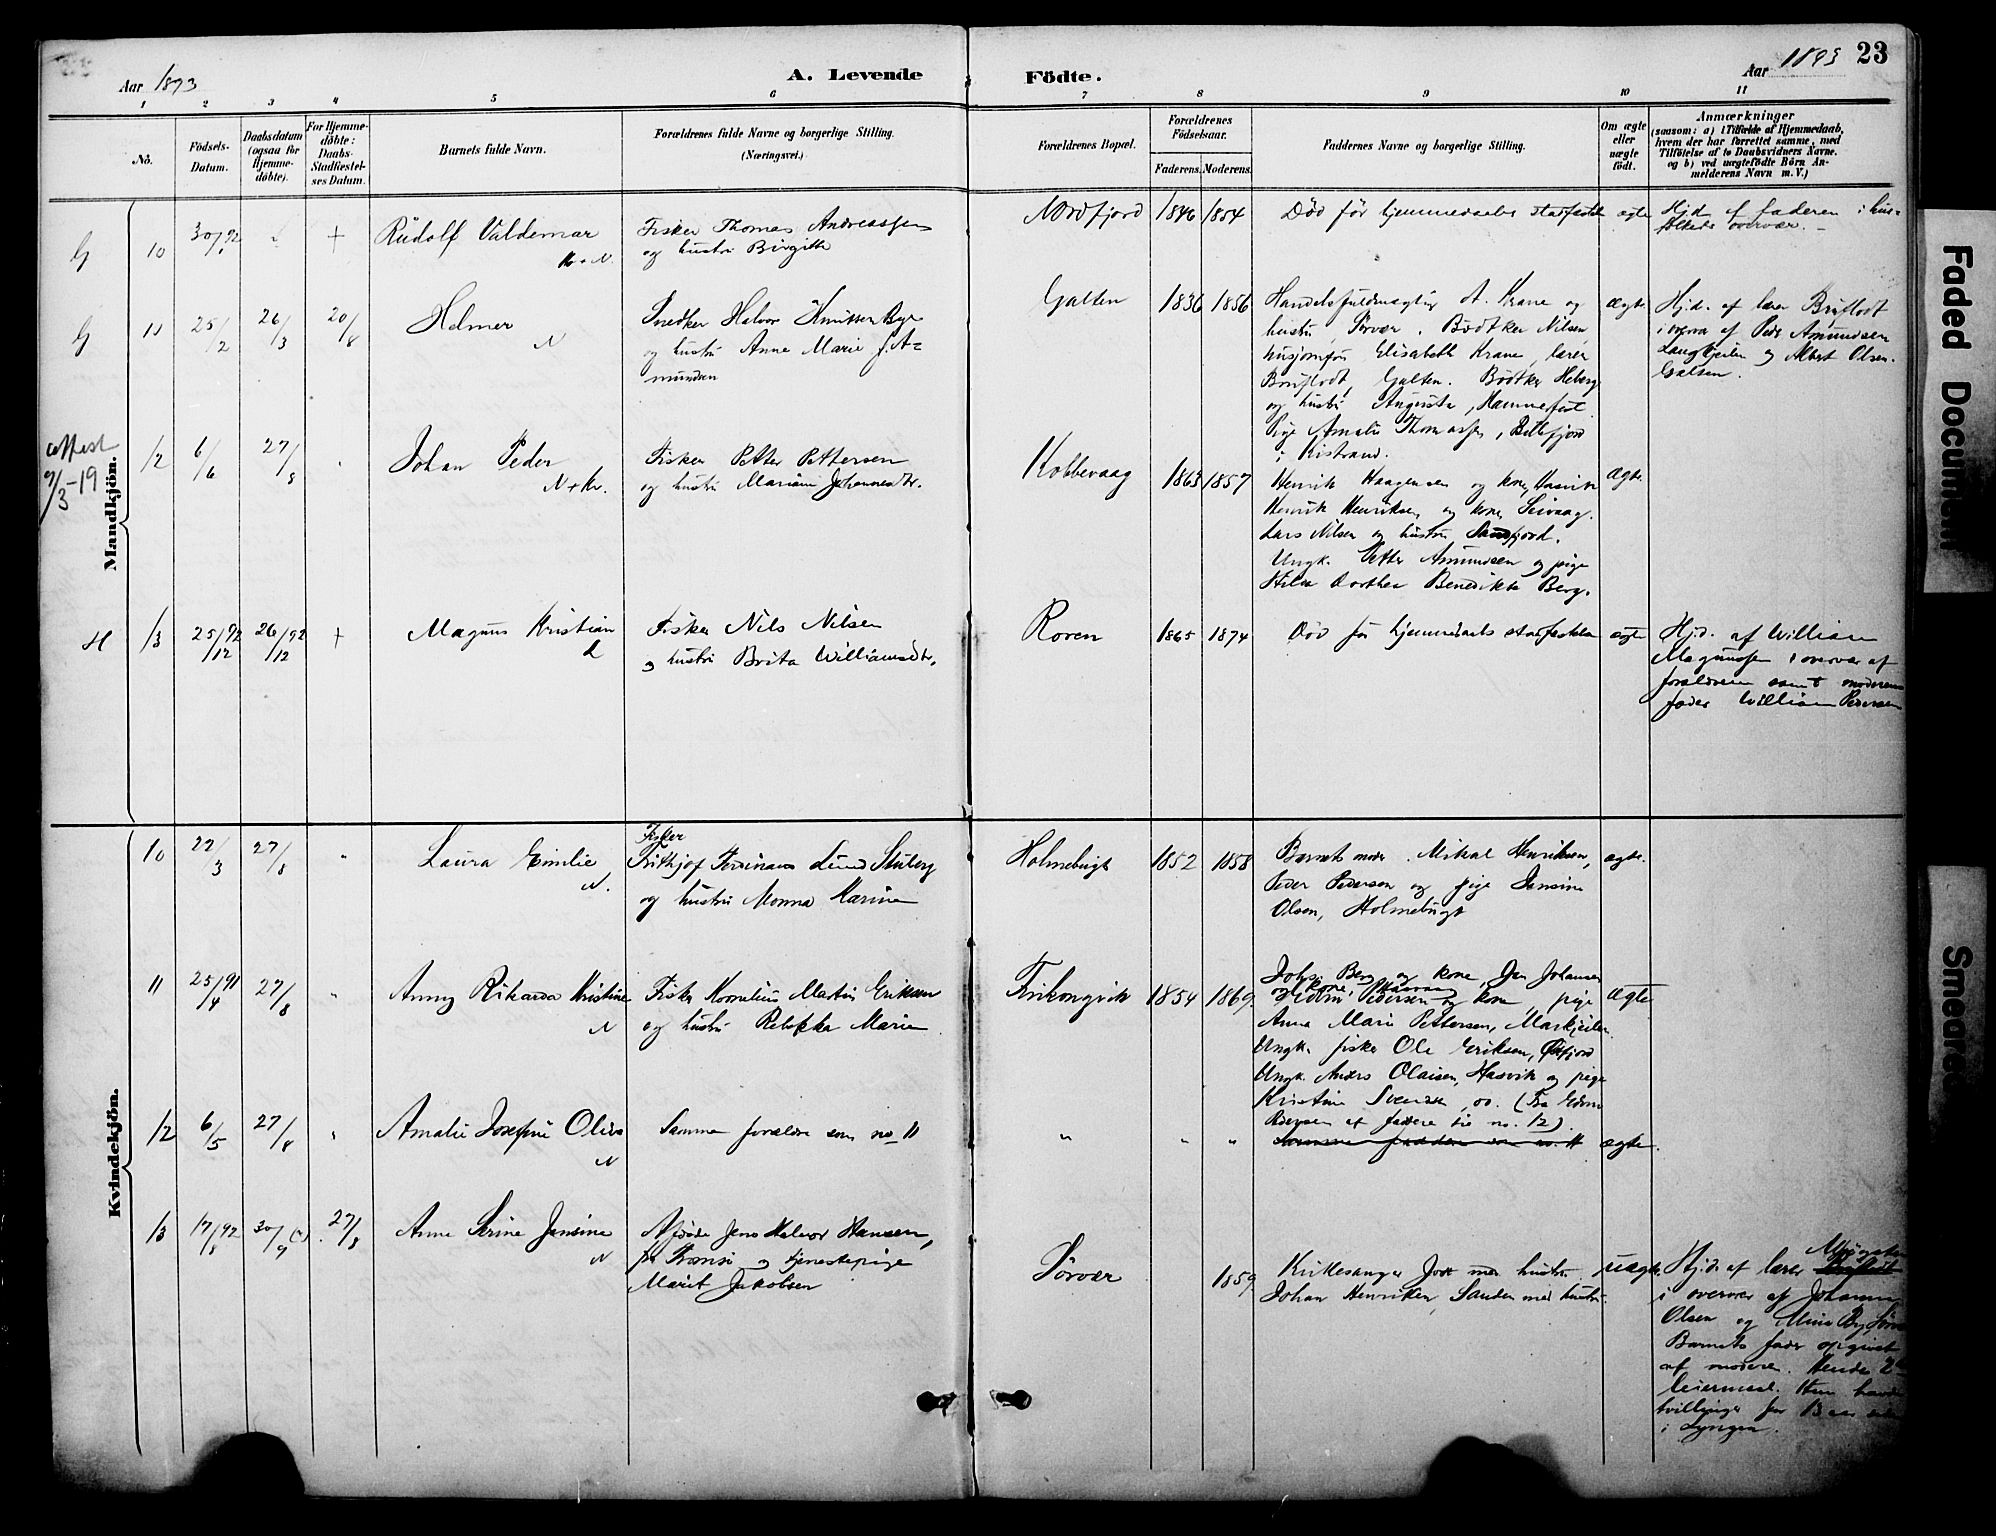 Aar 1893
A. Levende
Födte.
Aar 1893
23
1 2 3 4 5 6 7 8 9 10 11
No.
Födsels-
Datum.
Daabsdatum
(ogsaa for
Hjemme-
döbte).
For Hjemme-
döbte:
Daabs-
Stadfæstel-
ses Datum.
Barnets fulde Navn.
Forældrenes fulde Navne og borgerlige Stilling.
(Næringsvei.)
Forældrenes Bopæl.
Forældrenes
Födselsaar.
Faderens. Moderens.
Faddernes Navne og borgerlige Stilling.
Om ægte
eller
uægte
födt.
Anmærkninger
(saasom: a) i Tilfælde af Hjemmedaab,
hvem der har forrettet samme, med
Tilföielse af to Daabsvidners Navne.
og b) ved uægtefödte Börn An-
melderens Navn m. V.)
Mandkjön.
G
10
30/92
+
Rudolf Valdemar
K+N.
Fisker Thomas Andreassen
og hustru Birgitte
Nordfjord
1846
1854
Död før hjemmedaabs stadfæstelse
ægte
Hjd. af faderen i hus-
folkets overvær.
G
11
25/2
26/3
20/8
Helmer
N
Snedker Halvor Knutsen Bye
og hustru Anne Marie f. A=
mundsen
Galten
1836
1856
Handelsfuldmægtig A. Krane og
hustru, Sörvær. Bödtker Nilsen,
husjomfru Elisabeth Krane, lærer
Bruflodt, Galten. Bödtker Heberg
og hustru Augusta, Hammerfest
Pige Amalie Thomassen, Billefjord
i Kistrand.
ægte
Hjd. af lærer Bruflodt
i overvær af Peder Amundsen
Langkjeilen og Albert Olsen
Galten.
attest
9/3-19
12
6/6
27/8
"
Johan Peder
N+Kv.
Fisker Petter Pettersen
og hustru Mariane Johannesdtr.
Kobbevaag
1863
1857
Henrik Haagensen og kone, Hasvik
Henrik Henriksen og kone, Seivaag.
Lars Nilsen og hustru Sandfjord.
Ungk. Petter Amundsen og pige
Hilda Dorthea Benedikte Berg.
Ægte
H
13
25/92/12
26/92/12
+
Magnus Kristian
L
Fisker Nils Nilsen
og hustru Brita Williamsdtr.
Roren
1865
1874
Död før hjemmedaabs stadfæstelse
ægte
Hjd. af William
Magnussen i overvær af
forældrene samt moderens
fader William Pedersen
Kvindekjön.
10
22/3
27/8
"
Laura Emilie
N.
Fisker
Fritkjof Ferdinand Lund Stuberg
og hustru Monna Marine
Holmebugt
1852
1858
Barnets moder. Mikal Henriksen,
Peder Pedersen og pige Jensine
Olsen, Holmebugt
ægte.
11
25/91/4
27/8
"
Anny Rikarda Kristine
N
Fisker Kornelius Martin Eriksen
og hustru Rebekka Marie
1854
1869.
Johs. Berg og kone, Jan Johansen
og kone,
Edvin Pedersen og kone, pige
Anna Marie Pettersen, Markeilen
Ungk. fisker Ole Eriksen, Öxfjord
Ungk. Anders Olaisen, Hasvik og pige
Kristine Svendsen, do. (Fra Edvin
Pedersen af faddere til no. 12).
Ægte
12
6/5
27/8
"
Amalie Josefine Oliva
N
Samme forældre som no 11
"
"
"
Samme faddere som no. 11
ægte.
13
17/92/8
30/9
27/8
Anne Serine Jensine
N
Jens Halvor Hansen,
fra Tromsö og tjenestepige
Marit Jakobsen
Sörvær
1859.
Kirkesanger Jost med hustru
Johan Henriksen, Sanden med hustru.
uægte.
Hjd. af lærer Bruflodt
i overvær af Johannes
Olsen og Mina By, Sörvær
Barnets fader opgivet
af moderen. Hendes 2det
leiermaal. Hun havde
tvillinger for 13 aar siden
i Lyngen.
Faded Document
Smeared